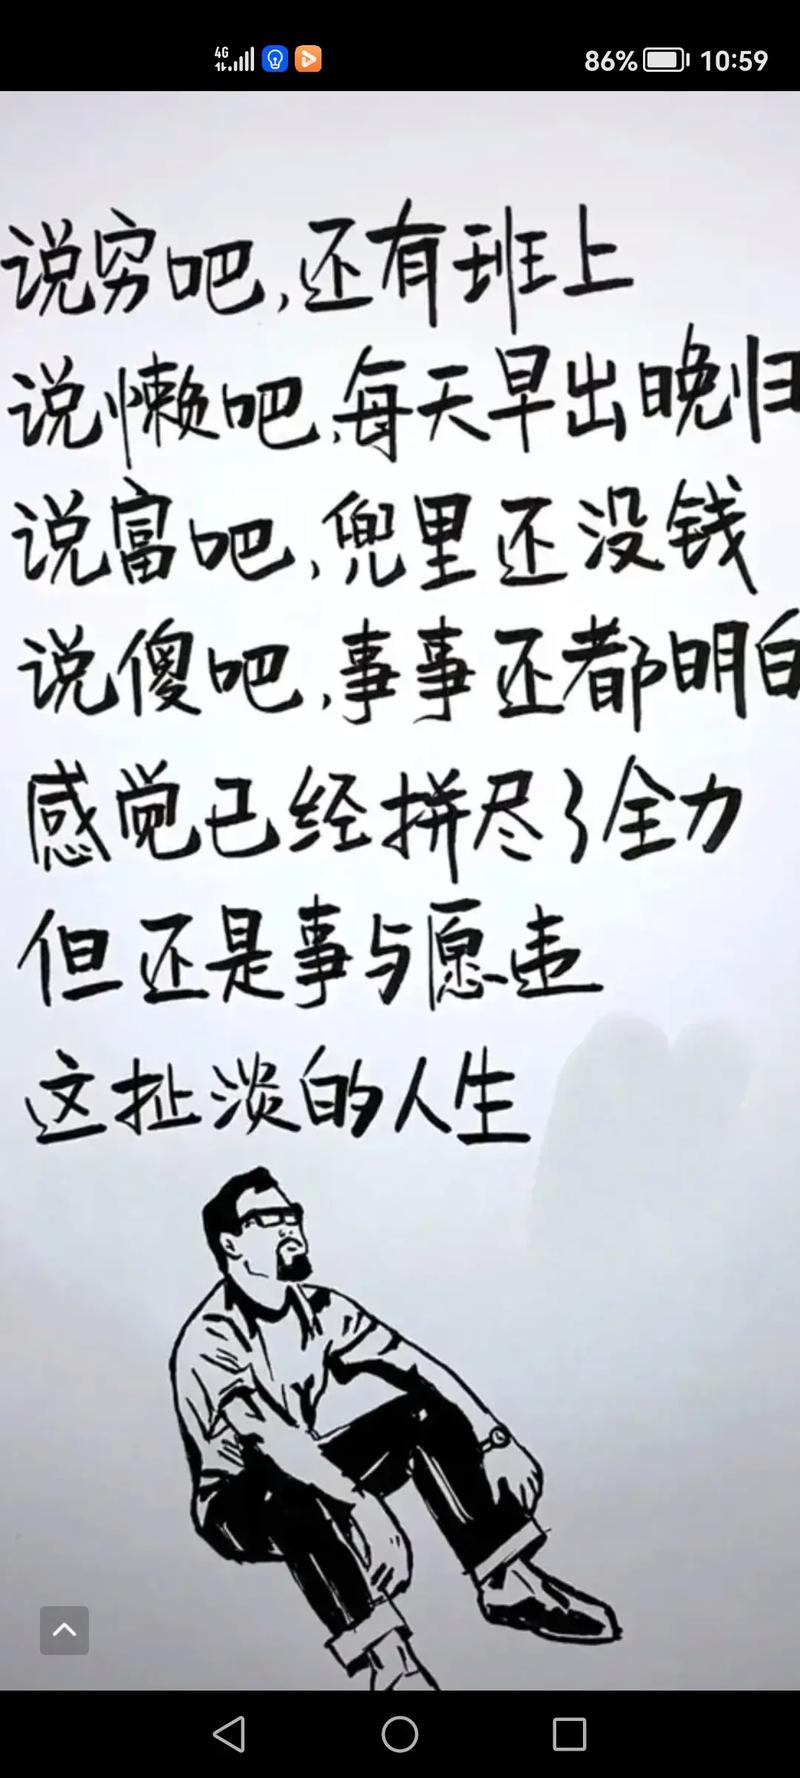 4G
86% 10:59
说穷吧,还有班上
说懒吧,每天早出晚归
说富吧,兜里还没钱
说傻吧,事事还都明白
感觉已经拼尽了全力
但还是事与愿违
这扯淡的人生